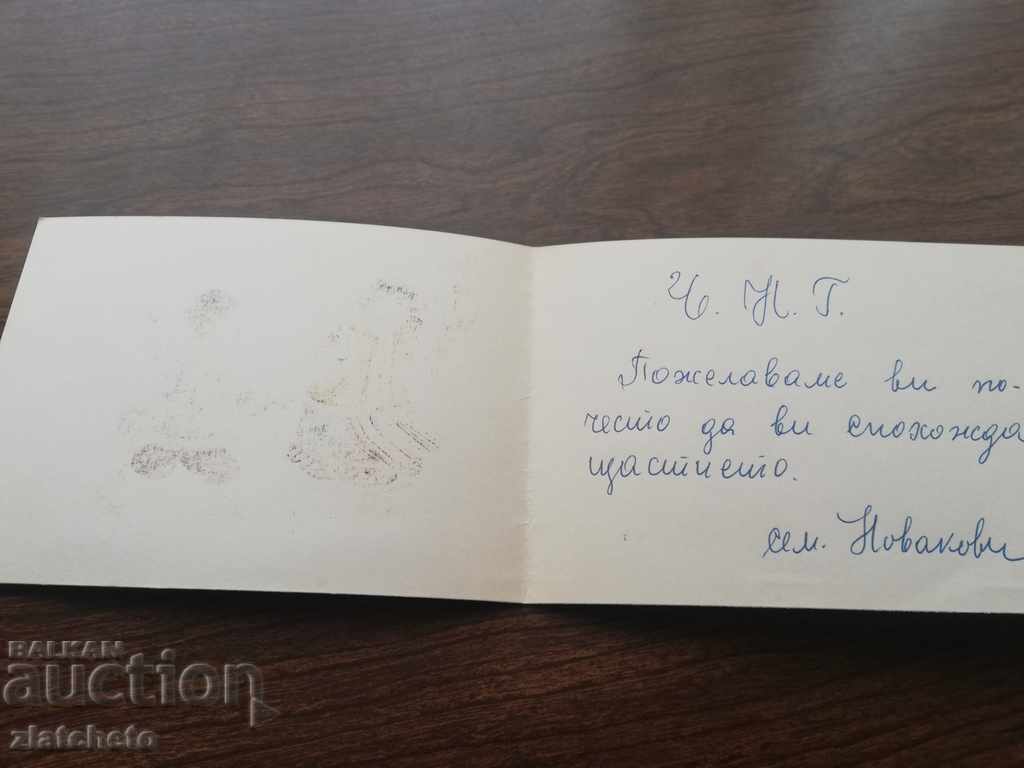 Ч. Н. Г.
Пожелаваме ви по-
често да ви спохожда
щастието.
сем. Новакови
BALKAN
auction
zlatcheto